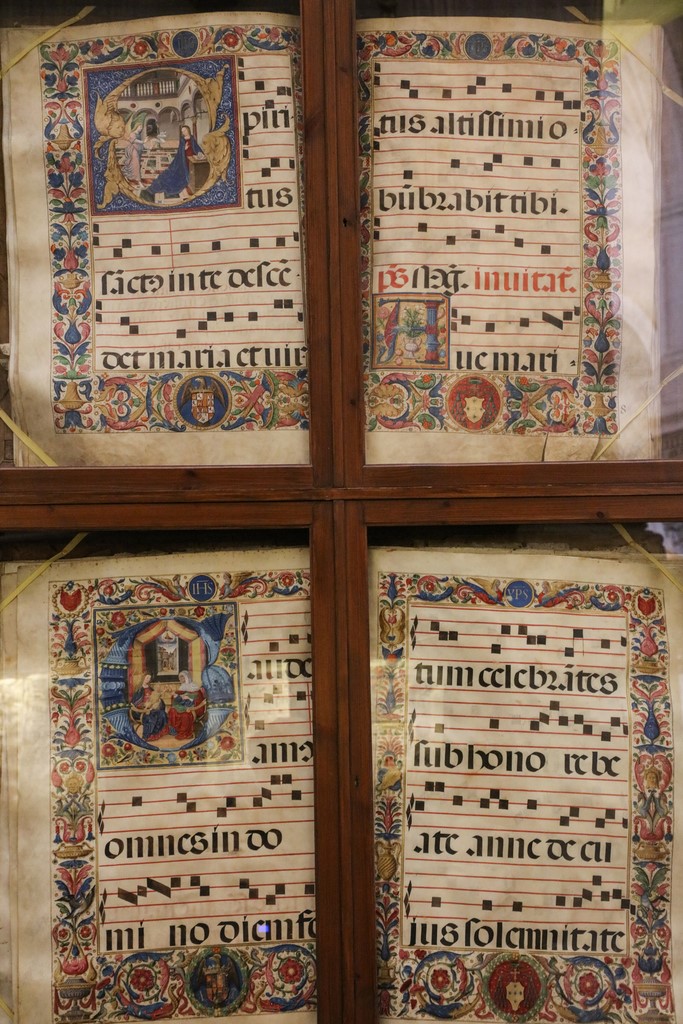 Spiri
tus
sāctꝰ in te descē
det maria et uir
tus altissimi o
būbrabit tibi.
inuitat̄.
Aue mari
IHS
YPS
Gaude
amꝰ
omnes in do
mi no diem fe
tum celebrātes
sub hono re be
ate anne de cu
jus solemnitate